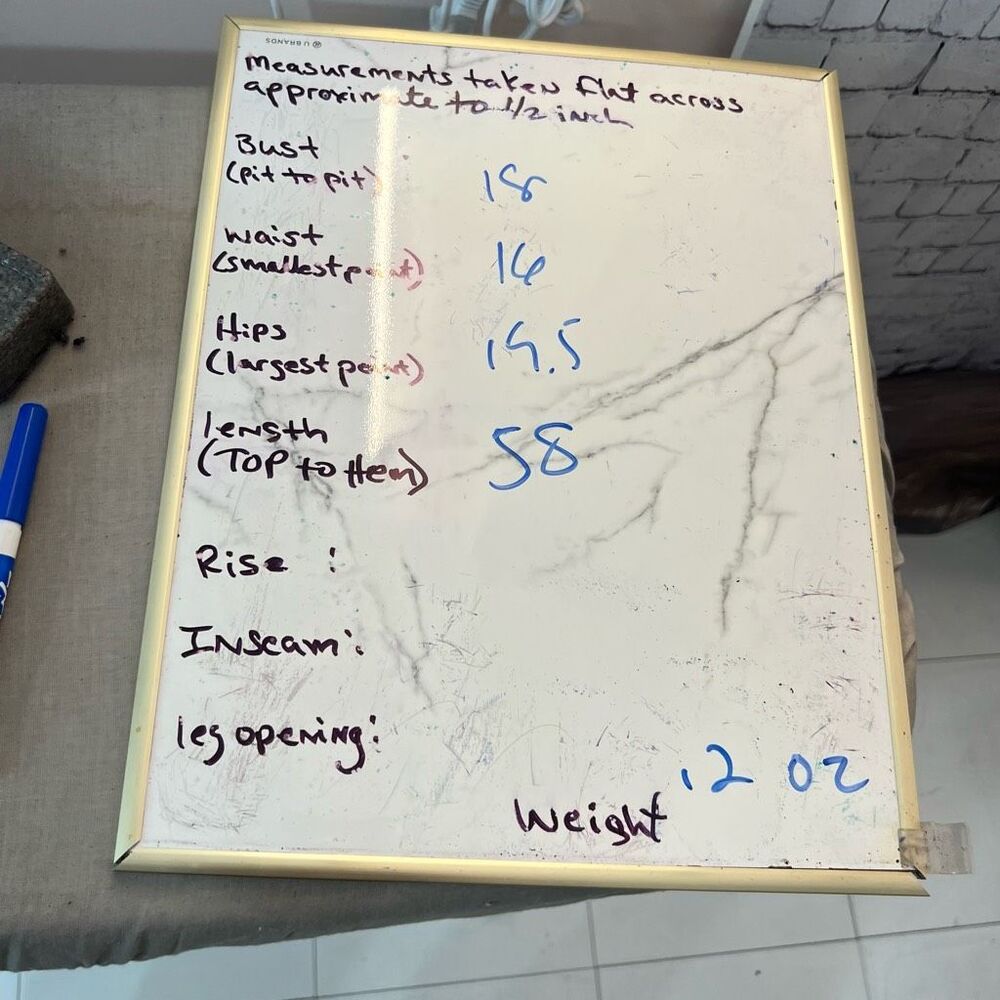 U BRANDS
Measurements taken flat across
approximate to 1/2 inch
Bust
(pit to pit) 18
waist
(smallest point) 16
Hips
(largest point) 19.5
length
(TOP to Hem) 58
Rise :
Inseam:
leg opening:
12 oz
Weight